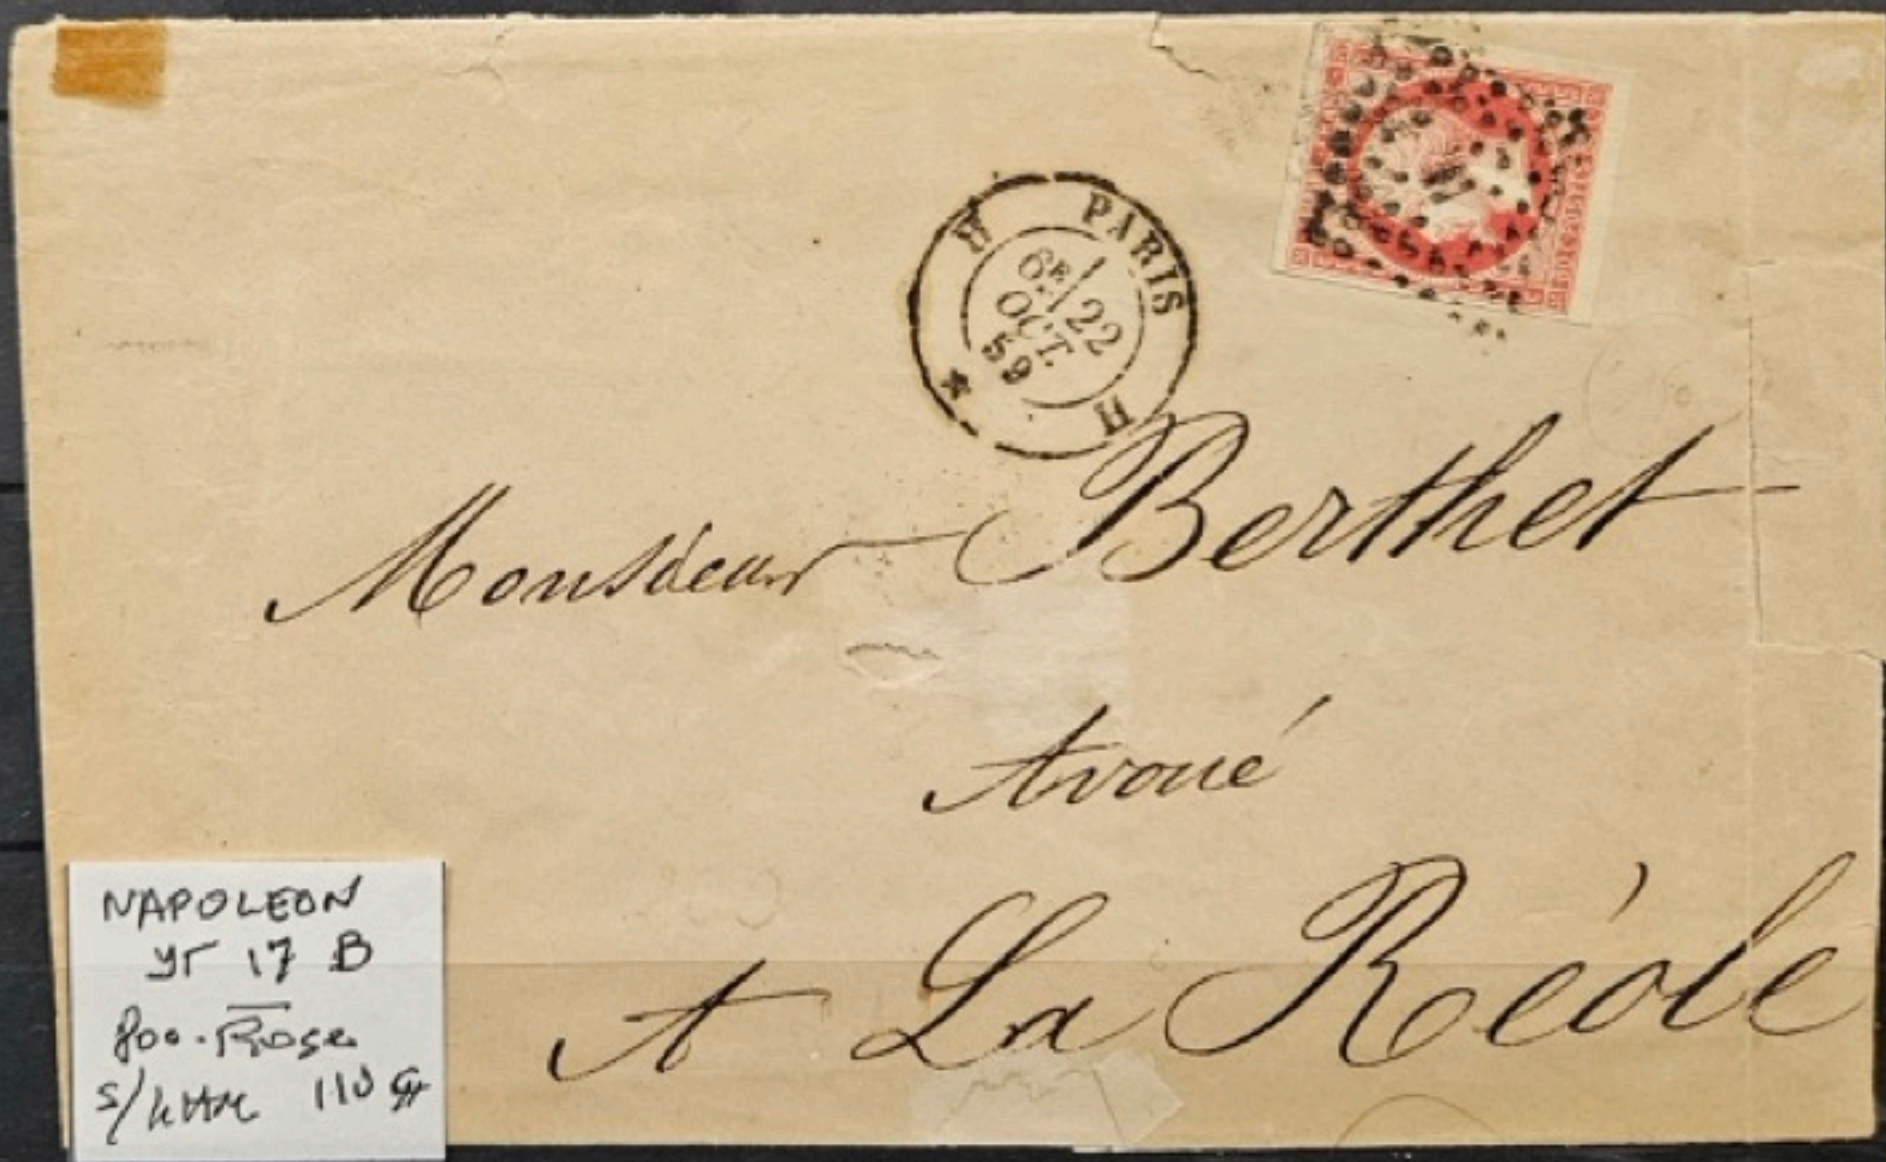 H PARIS H
6E/22
OCT.
59
Monsieur Berthet
Avoué
A La Réole
NAPOLEON
YT 17 B
80c. Rose
s/lettre 110 €